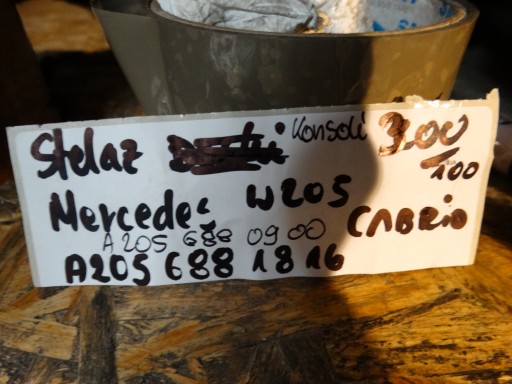 Stelaż Konsoli 300
100
Mercedes W205 CABRIO
A 205 688 09 00
A205 688 18 16